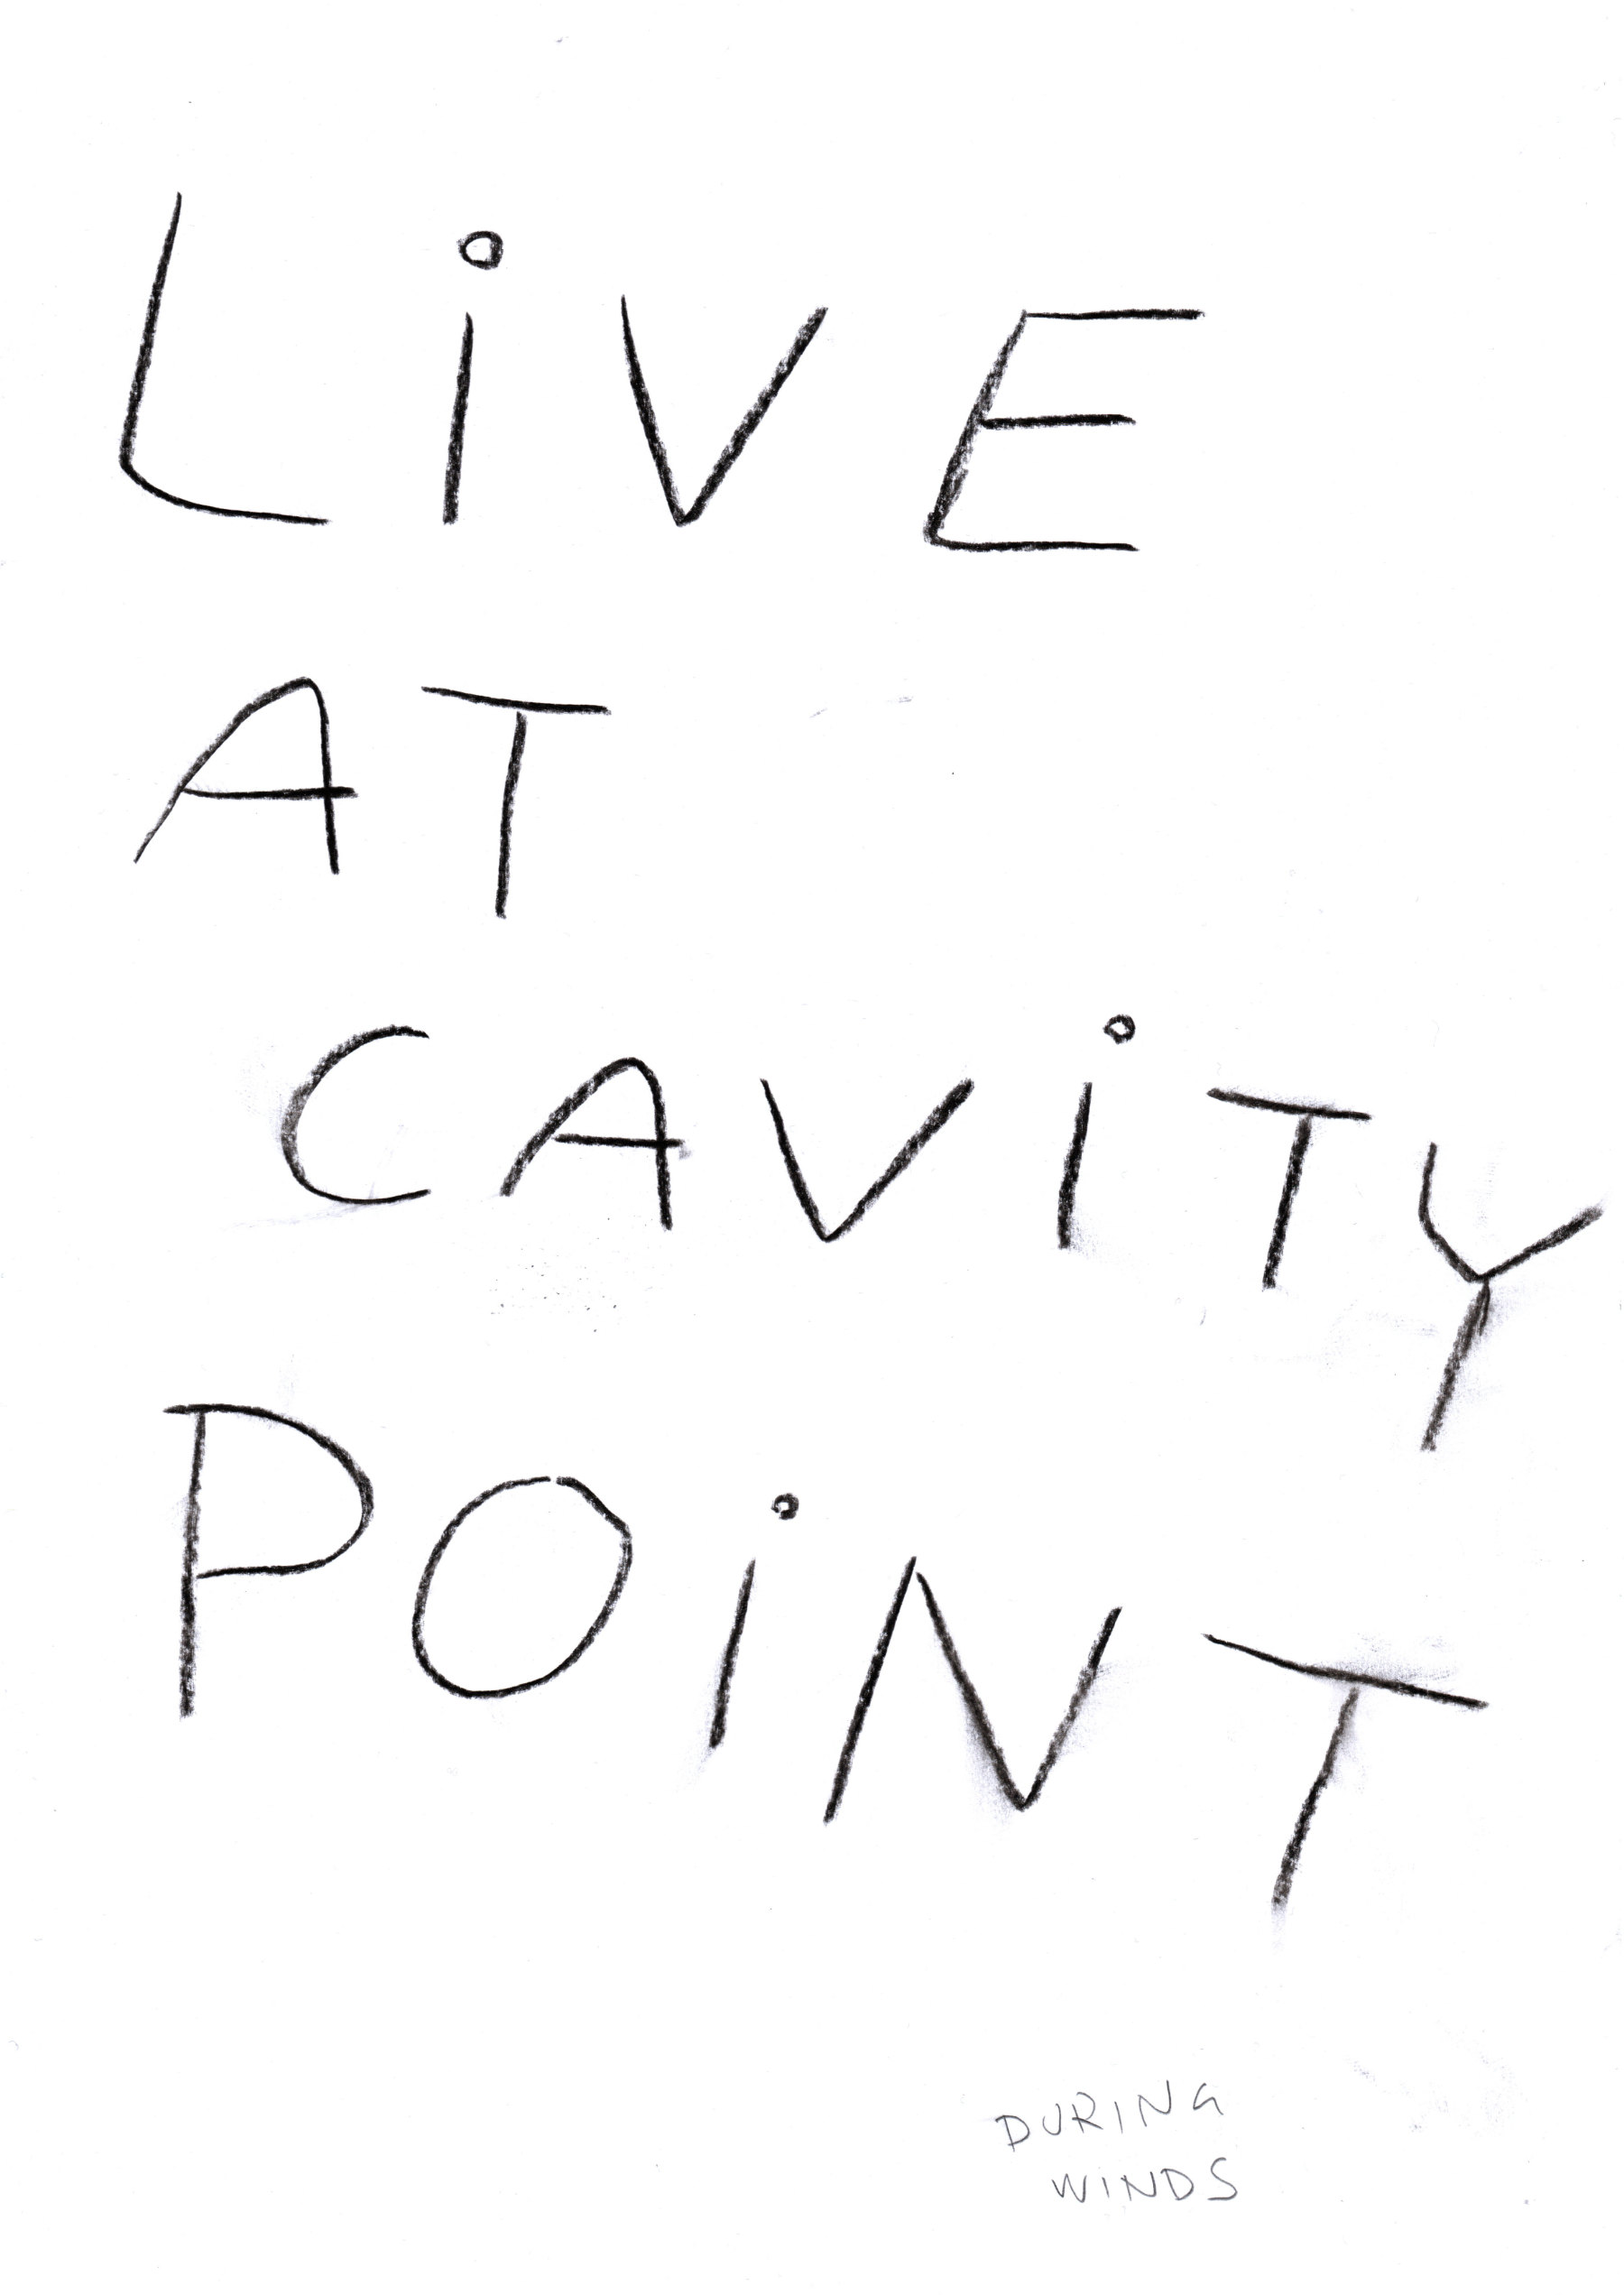 LiVE
AT
CAViTY
POiNT
DURING
WINDS